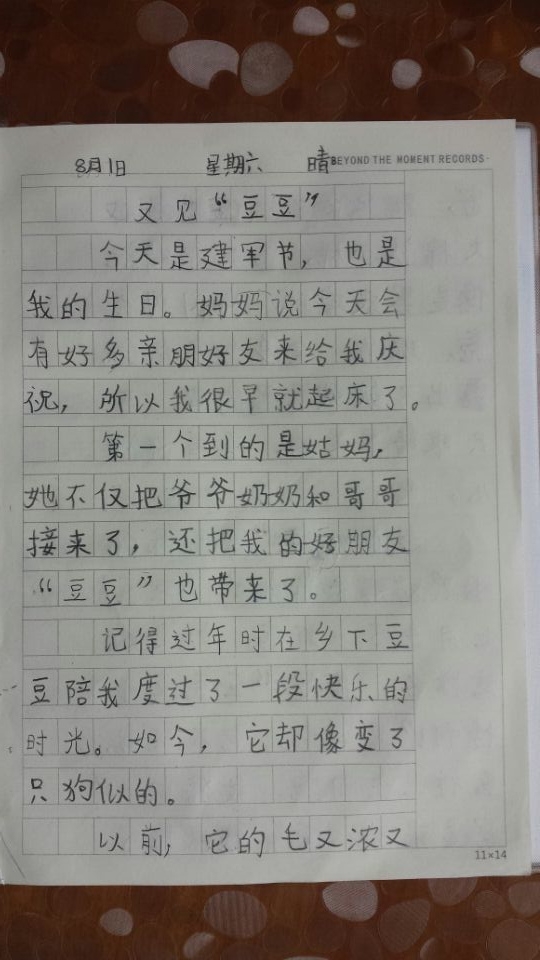 8月1日 星期六 晴 BEYOND THE MOMENT RECORDS
又见“豆豆”
今天是建军节，也是
我的生日。妈妈说今天会
有好多亲朋好友来给我庆
祝，所以我很早就起床了。
第一个到的是姑妈，
她不仅把爷爷奶奶和哥哥
接来了，还把我的好朋友
“豆豆”也带来了。
记得过年时在乡下豆
豆陪我度过了一段快乐的
时光。如今，它却像变了
只狗似的。
以前，它的毛又浓又
11×14